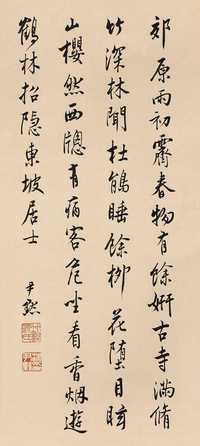 郊原雨初霽春物有餘妍古寺滿脩
竹深林聞杜鵑睡餘柳花墮目眩
山櫻然西牕有病客危坐看香烟遊
鶴林招隱東坡居士
尹默